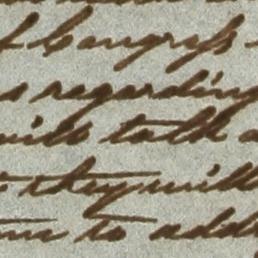 f Congress
s regarding
will talk a
they will
to add